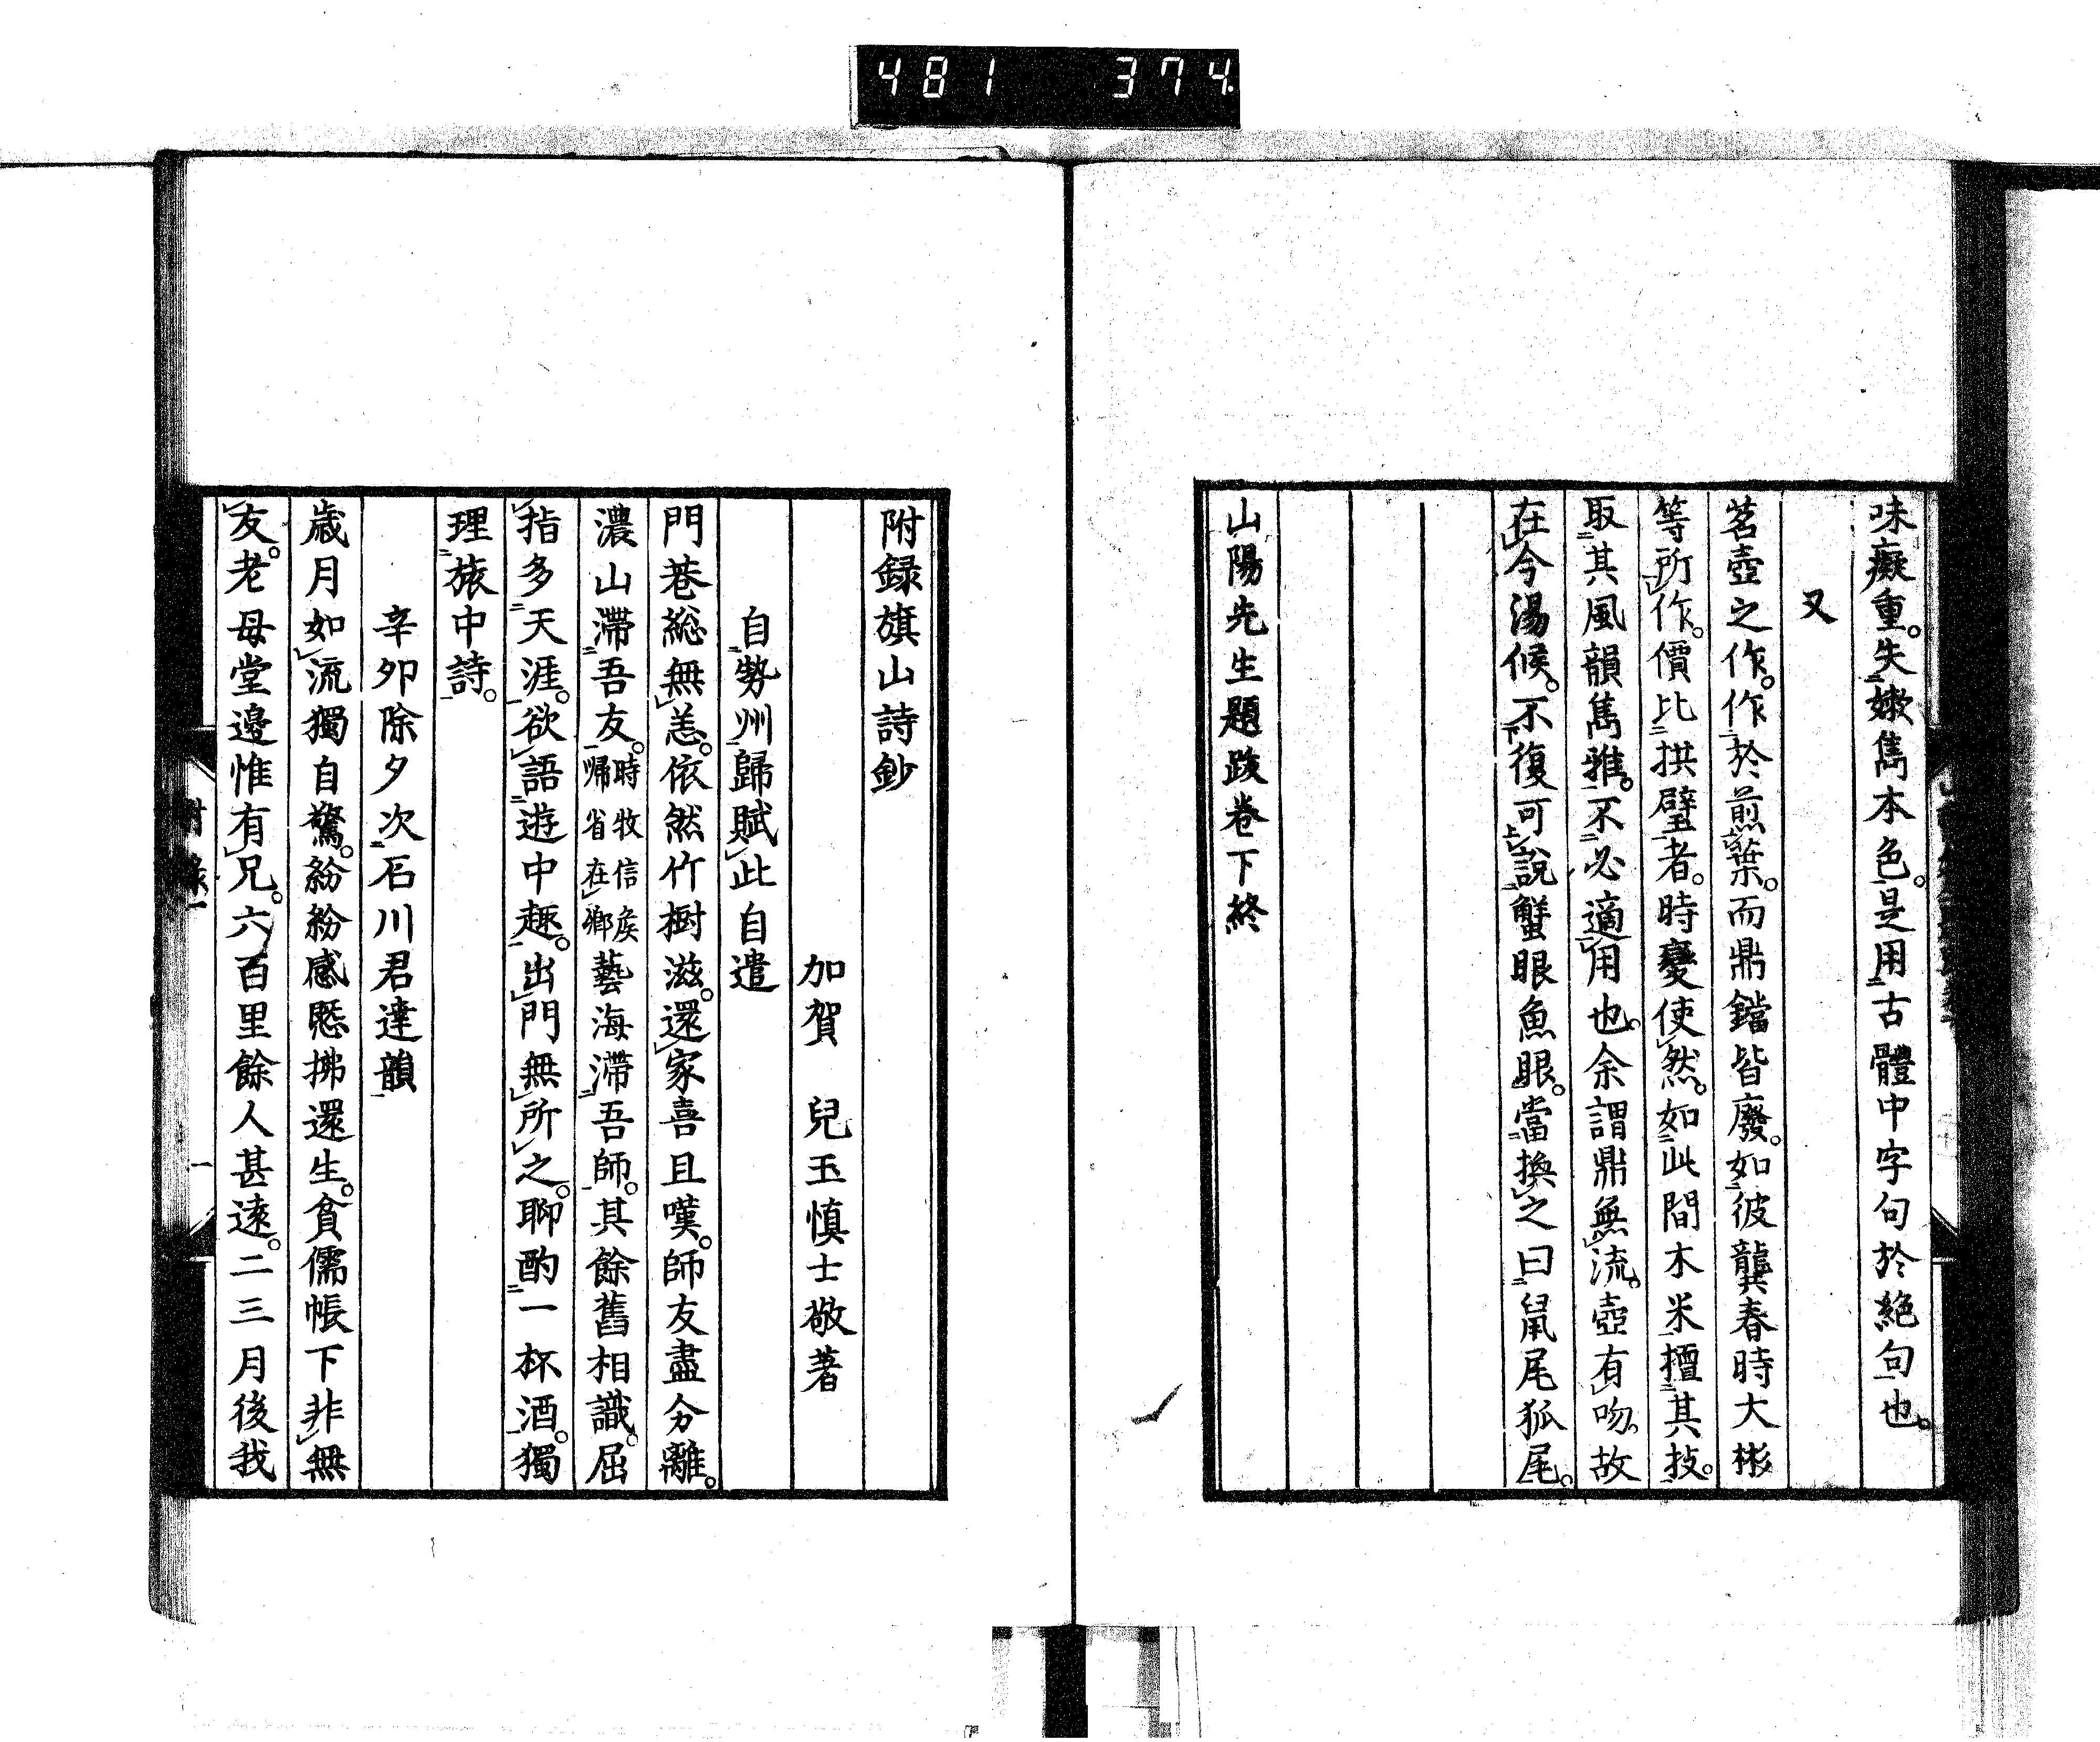 481 374.
味癡重。失嫩雋本色。是用古體中字句於絶句也。
又
茗壺之作。作於煎葉。而鼎鐺皆廢。如彼龔春時大彬
等所作。價比拱璧者。時變使然。如此間木米擅其技。
取其風韻雋雅。不必適用也。余謂鼎無流。壺有吻。故
在今湯候。不復可說蟹眼魚眼。當換之曰鼠尾狐尾。
山陽先生題跋卷下終
附録旗山詩鈔
加賀 兒玉慎士敬著
自勢州歸賦此自遣
門巷総無恙。依然竹樹滋。還家喜且嘆。師友盡分離。
濃山滯吾友。時牧信矦帰省在鄉藝海滯吾師。其餘舊相識。屈
指多天涯。欲語遊中趣。出門無所之。聊酌一杯酒。獨
理旅中詩。
辛夘除夕次石川君達韻
歳月如流獨自驚。紛紛感慼拂還生。貧儒帳下非無
友。老母堂邊惟有兄。六百里餘人甚遠。二三月後我
附錄 一